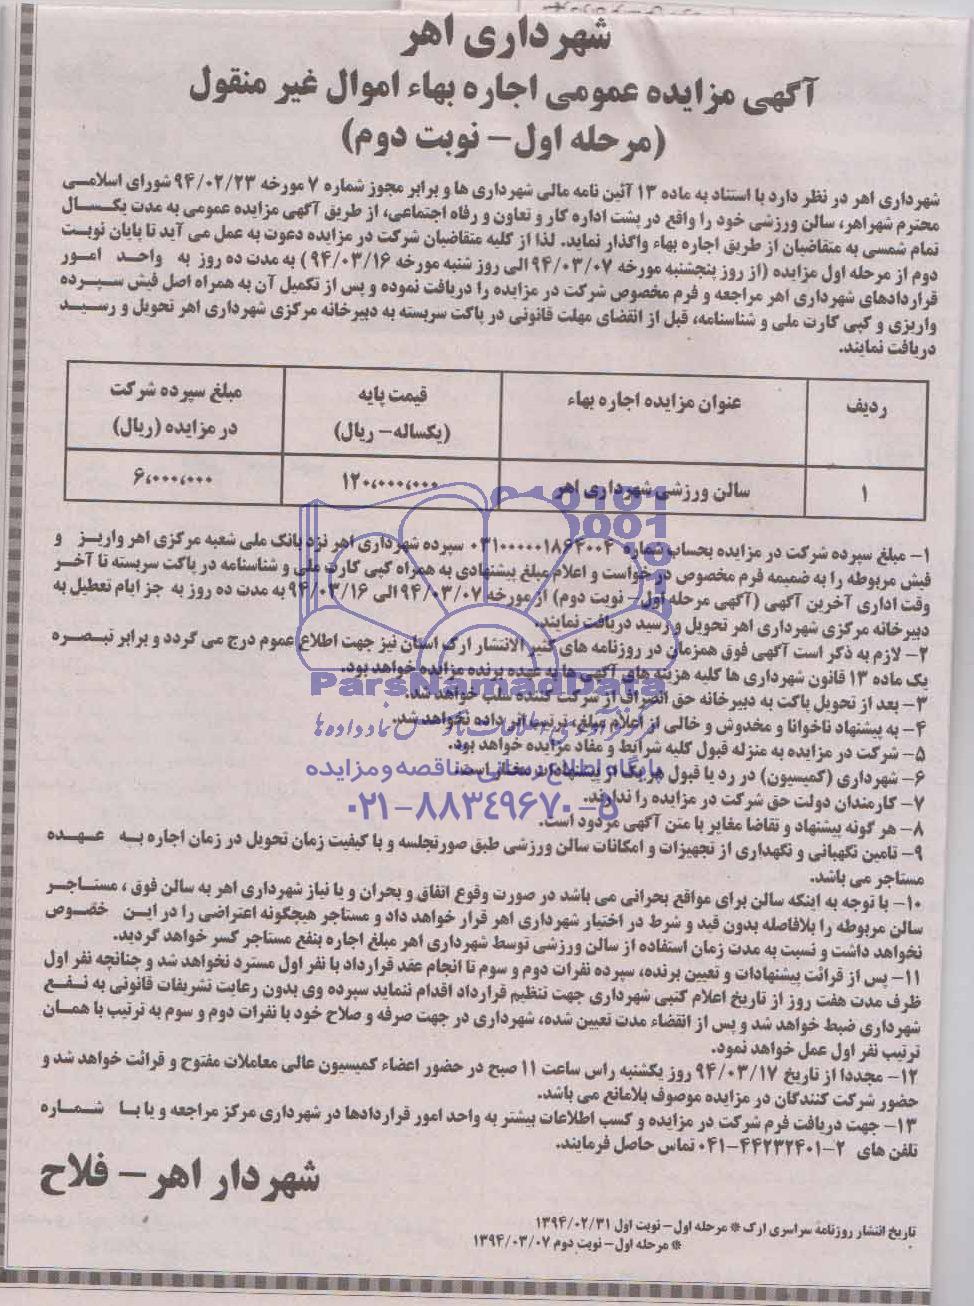 شهرداری اهر
آگهی مزایده عمومی اجاره بهاء اموال غیر منقول
(مرحله اول- نوبت دوم)
شهرداری اهر در نظر دارد با استناد به ماده ۱۳ آئین نامه مالی شهرداری ها و برابر مجوز شماره ۷ مورخه ۹۴/۰۲/۲۳ شورای اسلامی
محترم شهر اهر، سالن ورزشی خود را واقع در پشت اداره کار و تعاون و رفاه اجتماعی، از طریق آگهی مزایده عمومی به مدت یکسال
تمام شمسی به متقاضیان از طریق اجاره بهاء واگذار نماید. لذا از کلیه متقاضیان شرکت در مزایده دعوت به عمل می آید تا پایان نوبت
دوم از مرحله اول مزایده (از روز پنجشنبه مورخه ۹۴/۰۳/۰۷ الی روز شنبه مورخه ۹۴/۰۳/۱۶ ) به مدت ده روز به واحد امور
قراردادهای شهرداری اهر مراجعه و فرم مخصوص شرکت در مزایده را دریافت نموده و پس از تکمیل آن به همراه اصل فیش سپرده
واریزی و کپی کارت ملی و شناسنامه، قبل از انقضای مهلت قانونی در پاکت سربسته به دبیرخانه مرکزی شهرداری اهر تحویل و رسید
دریافت نمایند.
ردیف عنوان مزایده اجاره بهاء قیمت پایه (یکساله- ریال) مبلغ سپرده شرکت در مزایده (ریال)
۱ سالن ورزشی شهرداری اهر ۱۲۰,۰۰۰,۰۰۰ ۶,۰۰۰,۰۰۰
۱- مبلغ سپرده شرکت در مزایده بحساب شماره ۰۳۱۰۰۰۰۰۱۸۶۴۰۰۴ سپرده شهرداری اهر نزد بانک ملی شعبه مرکزی اهر واریز و
فیش مربوطه را به ضمیمه فرم مخصوص درخواست و اعلام مبلغ پیشنهادی به همراه کپی کارت ملی و شناسنامه در پاکت سربسته تا آخر
وقت اداری آخرین آگهی (آگهی مرحله اول- نوبت دوم) از مورخه ۹۴/۰۳/۰۷ الی ۹۴/۰۳/۱۶ به مدت ده روز به جز ایام تعطیل به
دبیرخانه مرکزی شهرداری اهر تحویل و رسید دریافت نمایند.
۲- لازم به ذکر است آگهی فوق همزمان در روزنامه های کثیر الانتشار ارک استان نیز جهت اطلاع عموم درج می گردد و برابر تبصره
یک ماده ۱۳ قانون شهرداری ها کلیه هزینه های آگهی ها به عهده برنده مزایده خواهد بود.
۳- بعد از تحویل پاکت به دبیرخانه حق انصراف از شرکت کننده سلب خواهد شد.
۴- به پیشنهاد ناخوانا و مخدوش و خالی از اعلام مبلغ، ترتیب اثر داده نخواهد شد.
۵- شرکت در مزایده به منزله قبول کلیه شرایط و مفاد مزایده خواهد بود.
۶- شهرداری (کمیسیون) در رد یا قبول هر یک از پیشنهادات مختار است.
۷- کارمندان دولت حق شرکت در مزایده را ندارند.
۸- هر گونه پیشنهاد و تقاضا مغایر با متن آگهی مردود است.
۹- تامین نگهبانی و نگهداری از تجهیزات و امکانات سالن ورزشی طبق صورتجلسه و با کیفیت زمان تحویل در زمان اجاره به عهده
مستاجر می باشد.
۱۰- با توجه به اینکه سالن برای مواقع بحرانی می باشد در صورت وقوع اتفاق و بحران و یا نیاز شهرداری اهر به سالن فوق ، مستاجر
سالن مربوطه را بلافاصله بدون قید و شرط در اختیار شهرداری اهر قرار خواهد داد و مستاجر هیچگونه اعتراضی را در این خصوص
نخواهد داشت و نسبت به مدت زمان استفاده از سالن ورزشی توسط شهرداری اهر مبلغ اجاره بنفع مستاجر کسر خواهد گردید.
۱۱- پس از قرائت پیشنهادات و تعیین برنده، سپرده نفرات دوم و سوم تا انجام عقد قرارداد با نفر اول مسترد نخواهد شد و چنانچه نفر اول
ظرف مدت هفت روز از تاریخ اعلام کتبی شهرداری جهت تنظیم قرارداد اقدام ننماید سپرده وی بدون رعایت تشریفات قانونی به نفع
شهرداری ضبط خواهد شد و پس از انقضاء مدت تعیین شده، شهرداری در جهت صرفه و صلاح خود با نفرات دوم و سوم به ترتیب با همان
ترتیب نفر اول عمل خواهد نمود.
۱۲- مجددا از تاریخ ۹۴/۰۳/۱۷ روز یکشنبه راس ساعت ۱۱ صبح در حضور اعضاء کمیسیون عالی معاملات مفتوح و قرائت خواهد شد و
حضور شرکت کنندگان در مزایده موصوف بلامانع می باشد.
۱۳- جهت دریافت فرم شرکت در مزایده و کسب اطلاعات بیشتر به واحد امور قراردادها در شهرداری مرکز مراجعه و یا با شماره
تلفن های ۲-۰۴۱-۴۴۲۳۲۴۰۱ تماس حاصل فرمایند.
شهردار اهر- فلاح
تاریخ انتشار روزنامه سراسری ارک * مرحله اول- نوبت اول ۱۳۹۴/۰۲/۳۱
* مرحله اول- نوبت دوم ۱۳۹۴/۰۳/۰۷
ParsNamadData
پایگاه اطلاع رسانی مناقصه و مزایده
۰۲۱-۸۸۳۴۹۶۷۰-۵